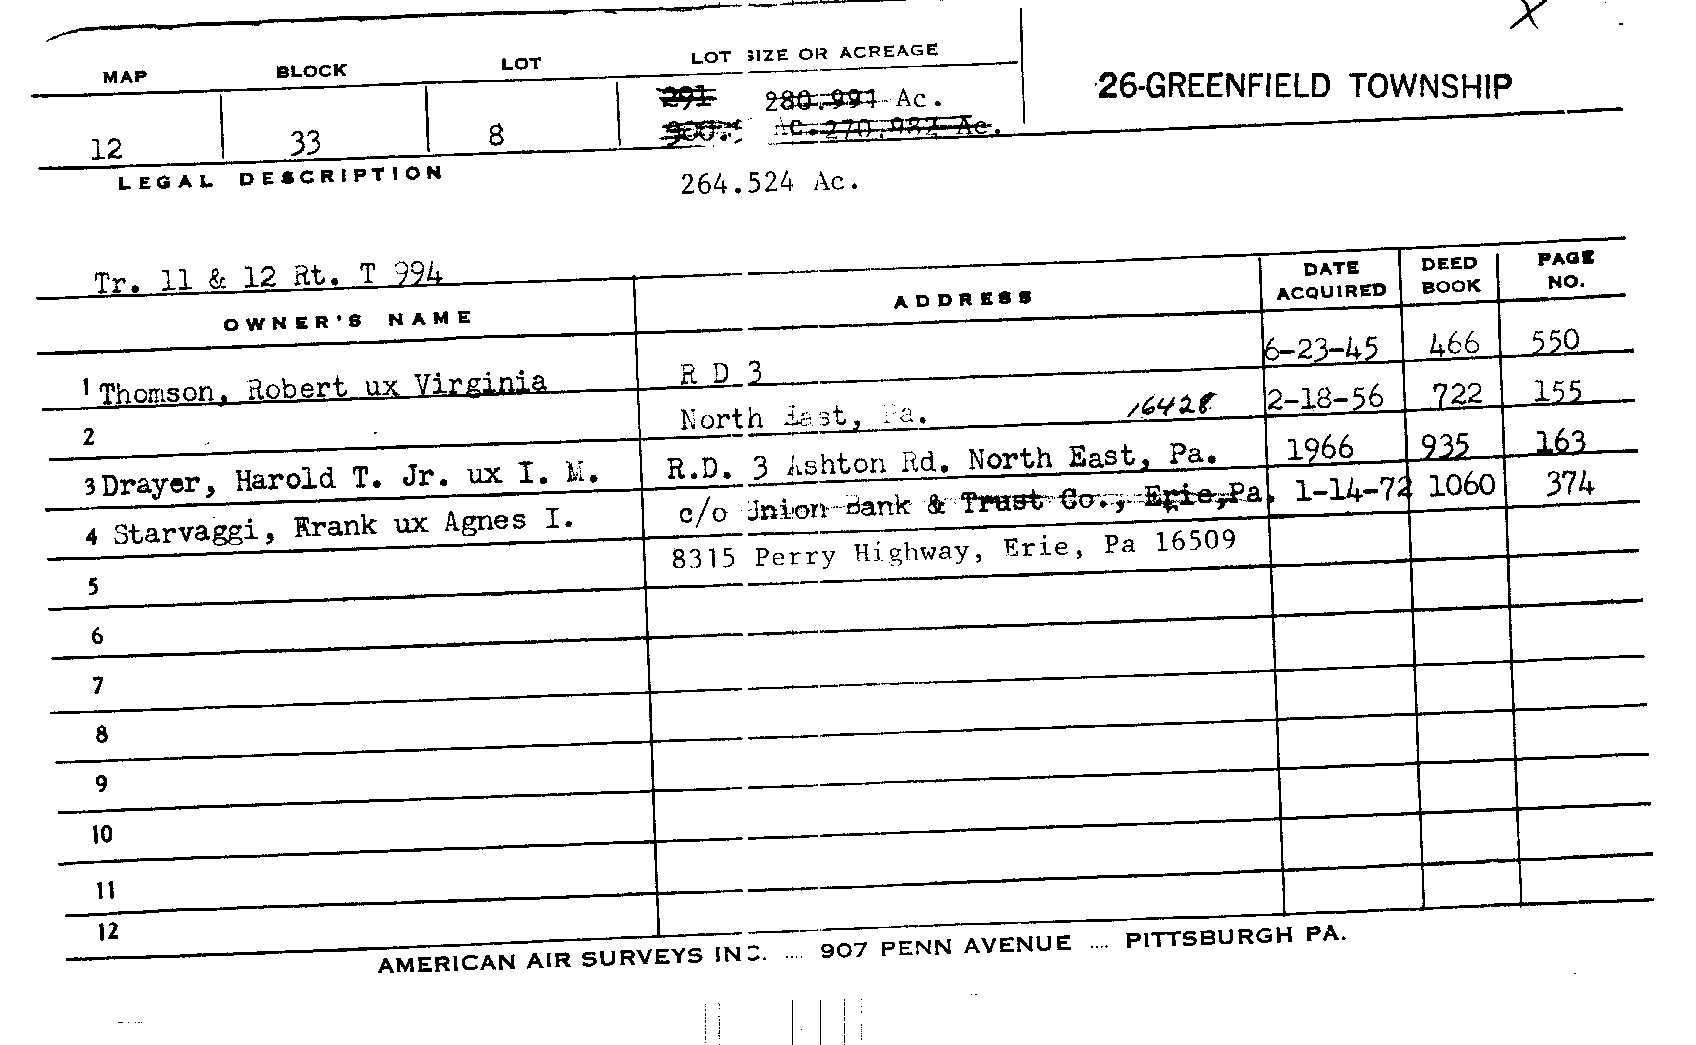 MAP BLOCK LOT LOT SIZE OR ACREAGE
26-GREENFIELD TOWNSHIP
291 280.991 Ac.
12 33 8 Ac. 270.982 Ac.
LEGAL DESCRIPTION
264.524 Ac.
Tr. 11 & 12 Rt. T 994
OWNER'S NAME ADDRESS DATE ACQUIRED DEED BOOK PAGE NO.
1 Thomson, Robert ux Virginia R D 3 6-23-45 466 550
2 North East, Pa. 16428 2-18-56 722 155
3 Drayer, Harold T. Jr. ux I. M. R.D. 3 Ashton Rd. North East, Pa. 1966 935 163
4 Starvaggi, Frank ux Agnes I. c/o Union Bank & Trust Co., Erie, Pa. 1-14-72 1060 374
5 8315 Perry Highway, Erie, Pa 16509
6
7
8
9
10
11
12
AMERICAN AIR SURVEYS INC. .... 907 PENN AVENUE .... PITTSBURGH PA.